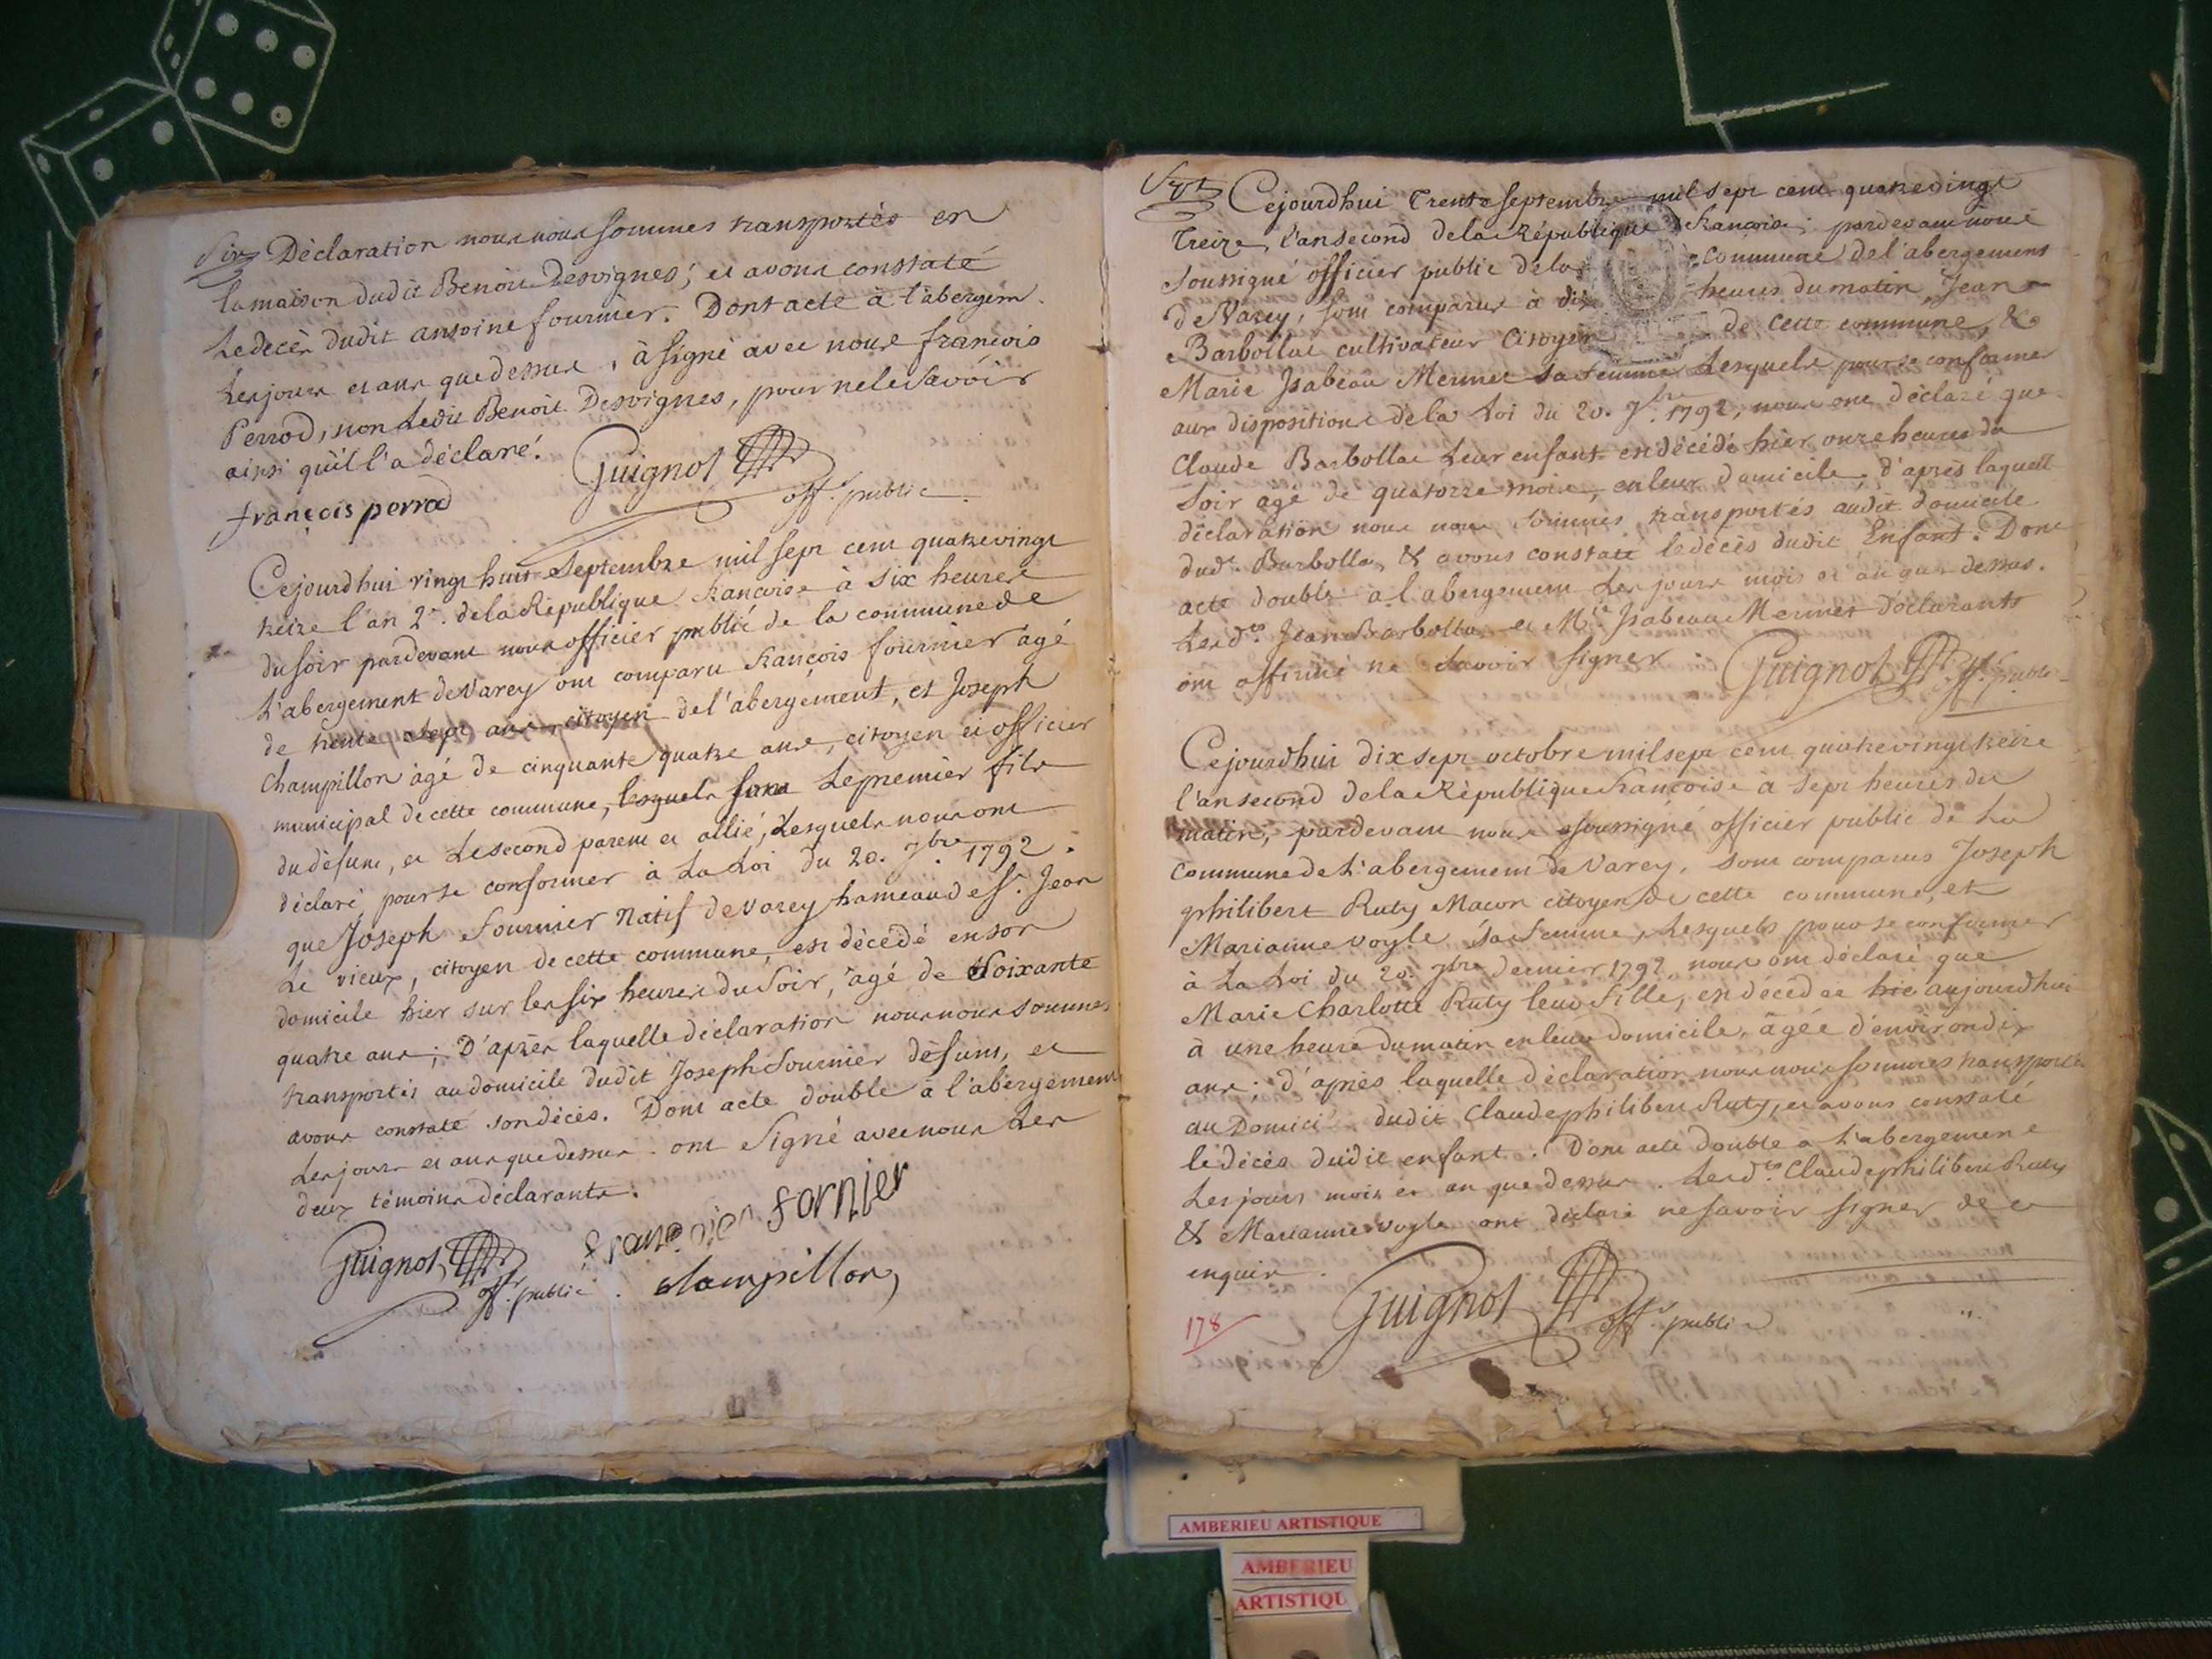 Six Déclaration nous nous sommes transportés en
la maison dudit Benoit Desvignes, et avons constaté
Le decès dudit antoine fournier. Dont acte à l'abergem.
Les jours et ans que dessus, à signé avec nous francois
Perrod, non Ledit Benoit Desvignes, pour ne le savoir
ainsi qu'il l'a déclaré.
françois perrod
Guignot
off.r public
Cejourdhui vingt huit Septembre mil sept cent quatrevingt
treize l'an 2.e de la République francoise à six heures
du soir pardevant nous officier public de la commune de
L'abergement de Varey ont comparu françois fournier âgé
de trente sept ans citoyen de l'abergement, et Joseph
Champillon âgé de cinquante quatre ans, citoyen et officier
municipal de cette commune, lesquels sont Le premier fils
du défunt, et Le second parent et allié, Lesquels nous ont
déclaré pour se conformer à La Loi du 20. 7bre. 1792.
que Joseph fournier Natif de Varey hameau de St. Jean
Le vieux, citoyen de cette commune, est décédé en son
domicile hier sur les six heures du Soir, âgé de Soixante
quatre ans; D'après laquelle déclaration nous nous sommes
transportés au domicile dudit Joseph fournier défunt, et
avons constaté son décès. Dont acte double à l'abergement
Les jours et ans que dessus. ont Signé avec nous Les
deux témoins déclarants.
Guignot
off.r public
fornier
Champillon
Sept Cejourdhui Trente septembre mil sept cent quatrevingt
Treize, l'an second de la République francoise; pardevant nous
soussigné officier public de la commune de l'abergement
de Varey, sont comparus à dix heures du matin, Jean
Barbollat cultivateur Citoyen de cette commune, &
Marie Isabeau Mermet sa femme Lesquels pour se conformer
aux dispositions de la Loi du 20. 7bre. 1792, nous ont déclaré que
Claude Barbollat Leur enfant est décédé hier onze heures du
Soir agé de quatorze mois, en leur domicile, d'après laquell
déclaration nous nous sommes transportés audit domicile
dud.t Barbollat, & avons constaté le décès dudit Enfant. Dont
acte double à l'abergement Les jours mois et an que dessus.
Lesd.ts Jean Barbollat et M.ie Isabeau Mermet déclarants
ont affirmé ne savoir signer.
Guignot off.r public
Cejourdhui dix sept octobre mil sept cent quatrevingt treize
l'an second de la République francoise à sept heures du
matin, pardevant nous soussigné officier public de La
Commune de L'abergement de Varey, sont comparus Joseph
philibert Ruty Macon citoyen de cette commune, et
Marianne voyle sa femme, Lesquels pour se conformer
à La Loi du 20. 7bre dernier 1792 nous ont déclaré que
Marie Charlotte Ruty leur fille, est décédée hie aujourdhui
à une heure du matin en leur domicile, âgée d'environ dix
ans; d'après laquelle déclaration nous nous sommes transportés
au Domici dudit Claude philibert Ruty, et avons constaté
le décès dudit enfant. Dont acte double à L'abergement
Les jours mois et an que dessus. Lesd.ts Claude philibert Ruty
& Marianne voyle ont déclaré ne savoir signer de ce
enquis.
Guignot
off.r public
178
AMBERIEU ARTISTIQUE
AMBERIEU
ARTISTIQU